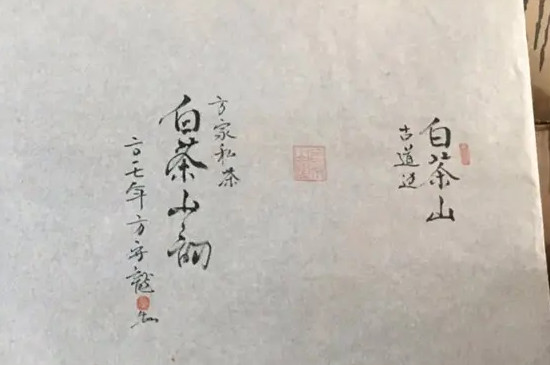 白茶山
古道边
方家私茶
白茶山韵
二〇一七年方守龙